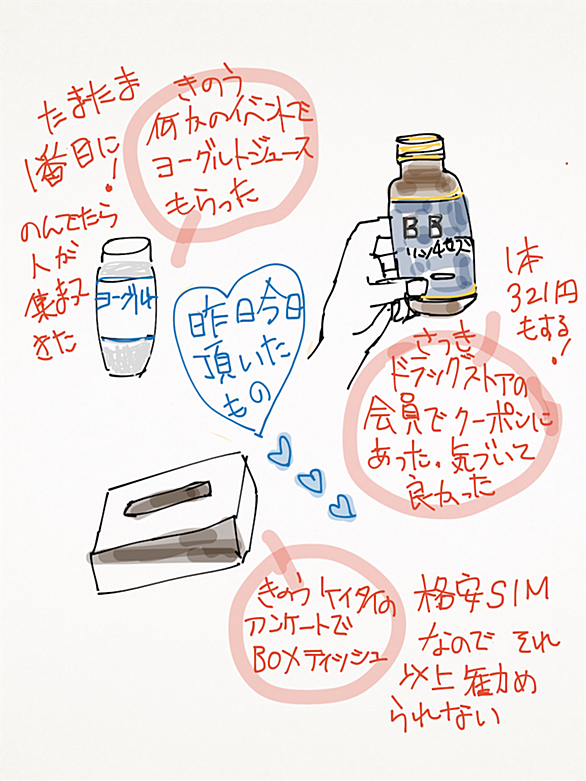 たまたま
1番目に!
のんでたら
人が
集まって
きた
きのう
何かのイベントで
ヨーグルトジュース
もらった
ヨーグルト
昨日今日
頂いた
もの
BB
1本
321円
もする!
さっき
ドラッグストアの
会員でクーポンに
あった。気づいて
良かった
きのう ケイタイの
アンケートで
BOXティッシュ
格安SIM
なので それ
以上 勧め
られない